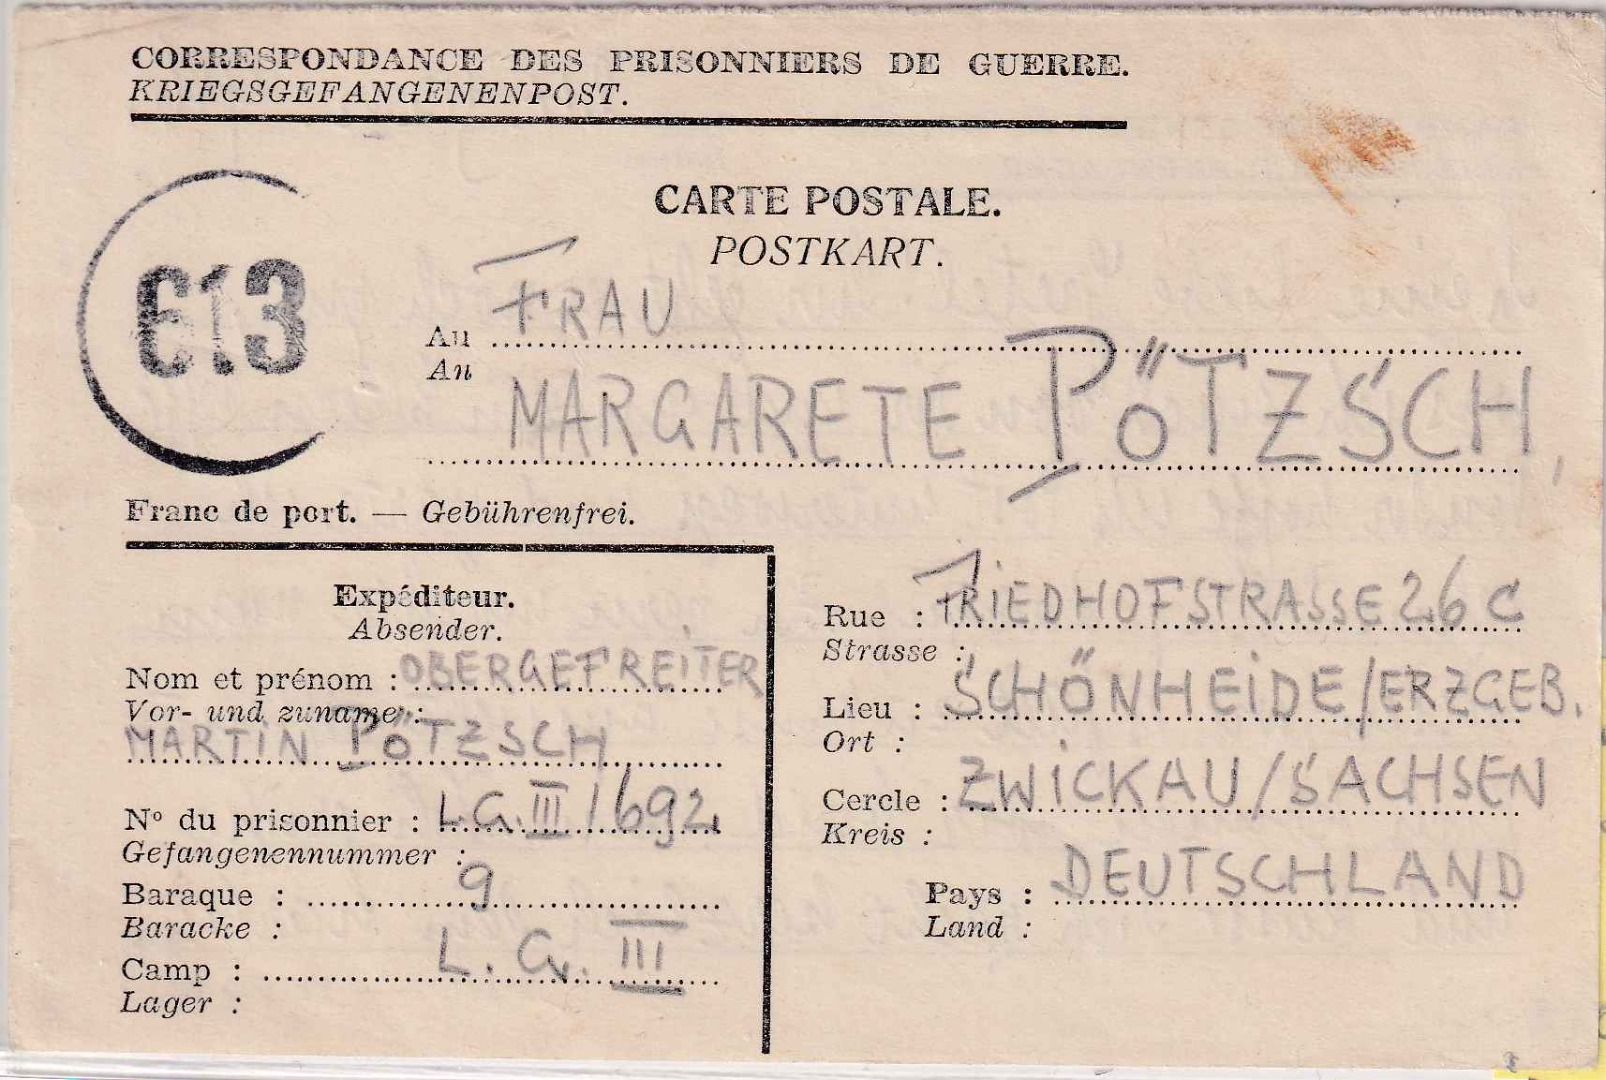 CORRESPONDANCE DES PRISONNIERS DE GUERRE.
KRIEGSGEFANGENENPOST.
613
CARTE POSTALE.
POSTKART.
Au FRAU
An
MARGARETE PÖTZSCH,
Franc de port. — Gebührenfrei.
Expéditeur.
Absender.
Nom et prénom : OBERGEFREITER
Vor- und zuname :
MARTIN PÖTZSCH
No du prisonnier : L.G. III/692
Gefangenennummer :
Baraque : 9
Baracke :
Camp : L.G. III
Lager :
Rue : FRIEDHOFSTRASSE 26 C
Strasse :
Lieu : SCHÖNHEIDE/ERZGEB.
Ort :
Cercle : ZWICKAU/SACHSEN
Kreis :
Pays : DEUTSCHLAND
Land :